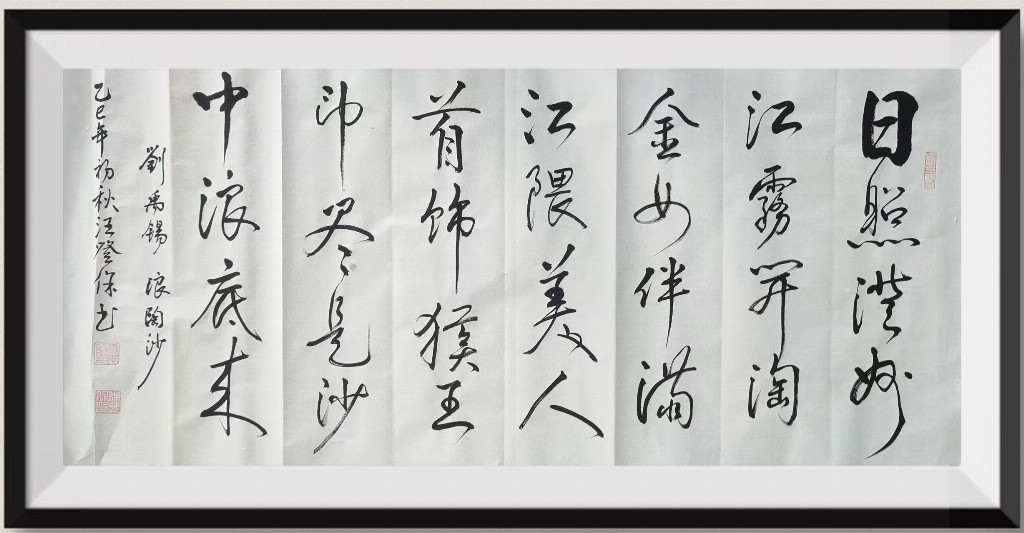 日照澄洲
江霧開淘
金女伴滿
江隈美人
首饰猴王
印尽是沙
中浪底来
劉禹锡 浪陶沙
乙巳年初秋汪登保书